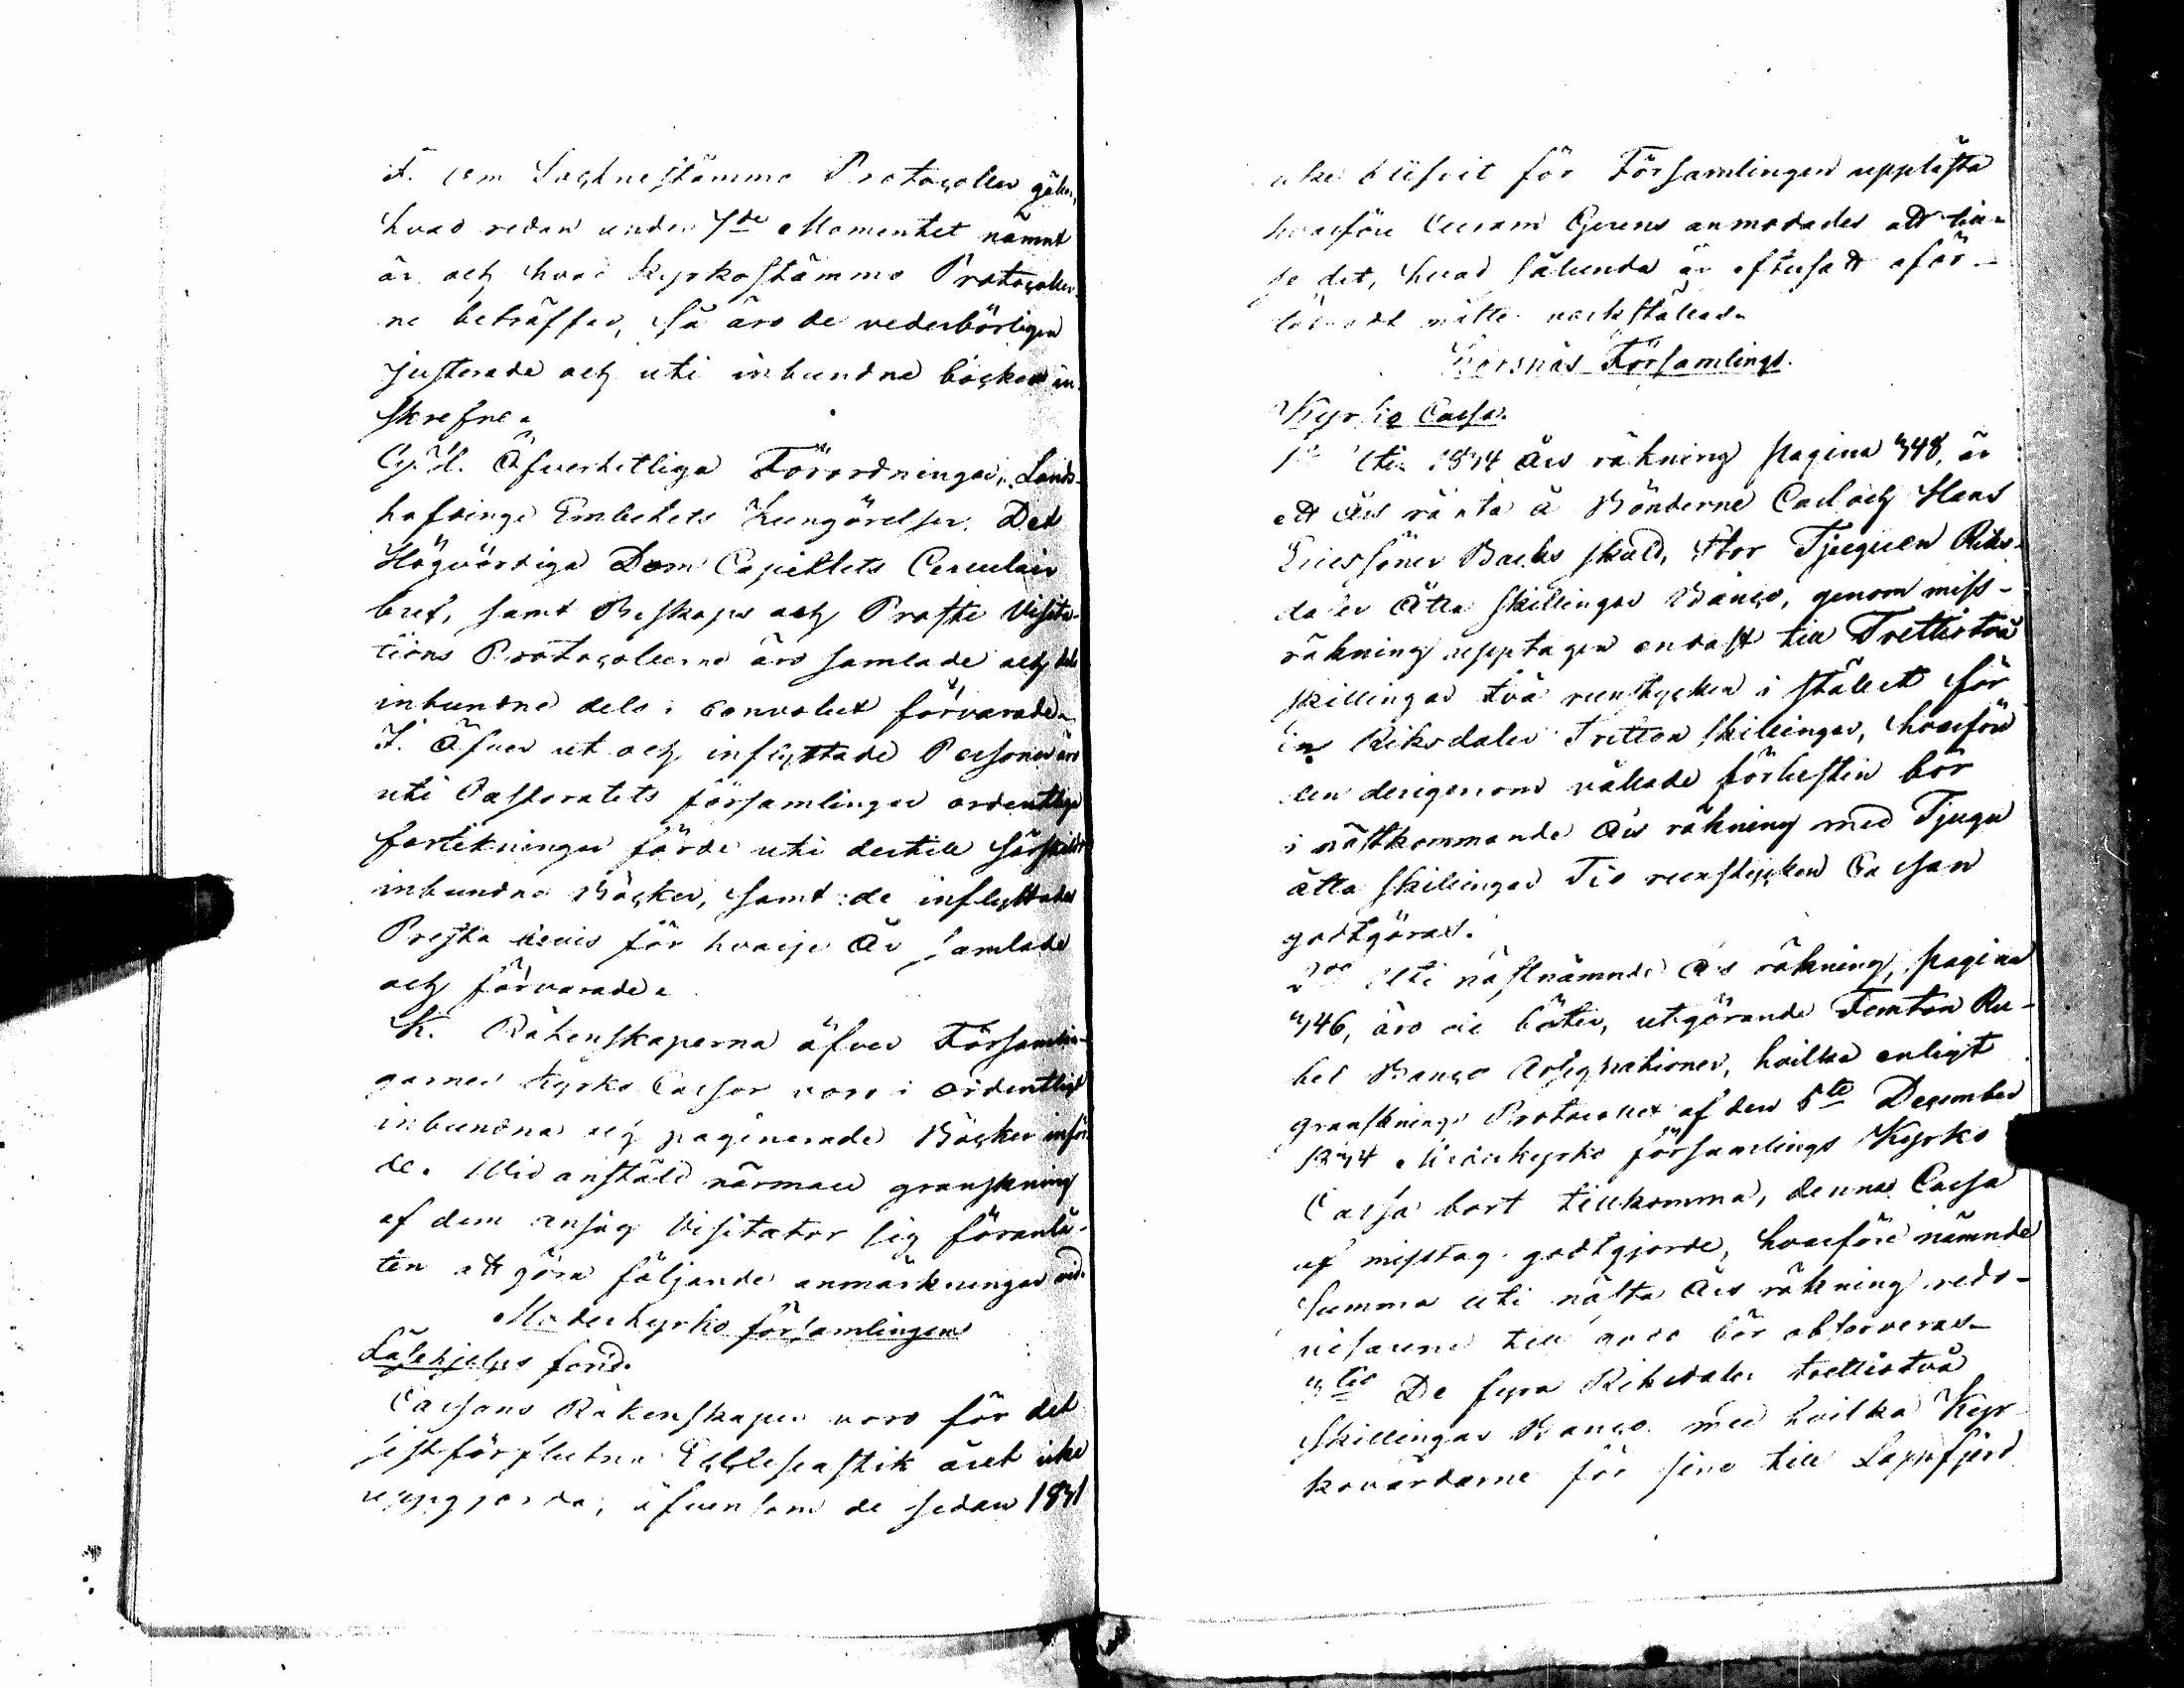 F. om Sockne stämmo Protocollen gäller,
hvad redan under 4de Momentet nämnt
är och hvad Kyrkostämmo Protocoller-
ne beträffar, så äro de vederbörligen
justerade och uti inbundne böcker in-
skrefne.
G. H. Öfverhetliga Förordningar, Lands-
höfdinge Embetets Kungörelser, Det
Högvördiga Dom Capitlets Circulair
bref, samt Biskops och Proste Visita-
tions Protocollerne äro samlade och dels
inbundne dels i convolut förvarade.
I. Öfver ut och inflyttade Personer äro
uti Pastoratets församlingar ordentliga
förtekningar förde uti dertill särskildt
inbundna Böcker, samt de inflyttades
Presta bevis för hvarje År samlade
och förvarade.
K. Räkenskaperna öfver Församlin-
garnes Kyrko Cassor voro i ordentligt
inbundna och paginerade Böcker inför-
de. Vid anstäld närmare granskning
af dem ansåg Visitator sig föranlå-
ten att göra följande anmärkningar vid.
Moderkyrko församlingen
Låhehjelps fond.
Cassans Räkenskaper voro för det
sistförflutna Ecclesiastik året icke
uppgjorda, äfvensom de sedan 1841
icke blifvit för Församlingen upplästa
hvarföre Curam Gerens anmodades att till-
se det, hvad sålunda är eftersatt oför-
måtte verkställas.
Korsnäs Församlings.
Kyrko Cassa.
1o Uti 1844 Års räkning pagina 448, är
ett Års ränta å Bönderne Carl och Hans
Ericssöner Backs skuld, stor Tjuguen Riks-
daler Åtta skillingar Banco, genom miss-
räkning upptagen endast till Trettiotvå
skillingar två runstycken i stället för
En Riksdaler Tretton skillingar, hvarföre
den derigenom vållade förlusten bör
i nästkommande Års räkning med Tjugu
åtta skillingar Tio runstycken Cassan
godtgöras.
2do Uti nästnämnde Års räkning, pagina
446, äro de böter, utgörande Femton Ru-
bel Banco Assignationer, hvilka enligt
gransknings Protocollet af den 5te December
1844 Moderkyrko församlings Kyrko
Cassa bort tillkomma, denna Cassa
af misstag godtgjorde, hvarföre nämnde
Summa uti nästa Års räkning redo-
visarene till godo bör observeras.
3tio De fyra Riksdaler trettiotvå
skillingar Banco med hvilka Kyr-
kovärdarne för sine till Lappfjerd